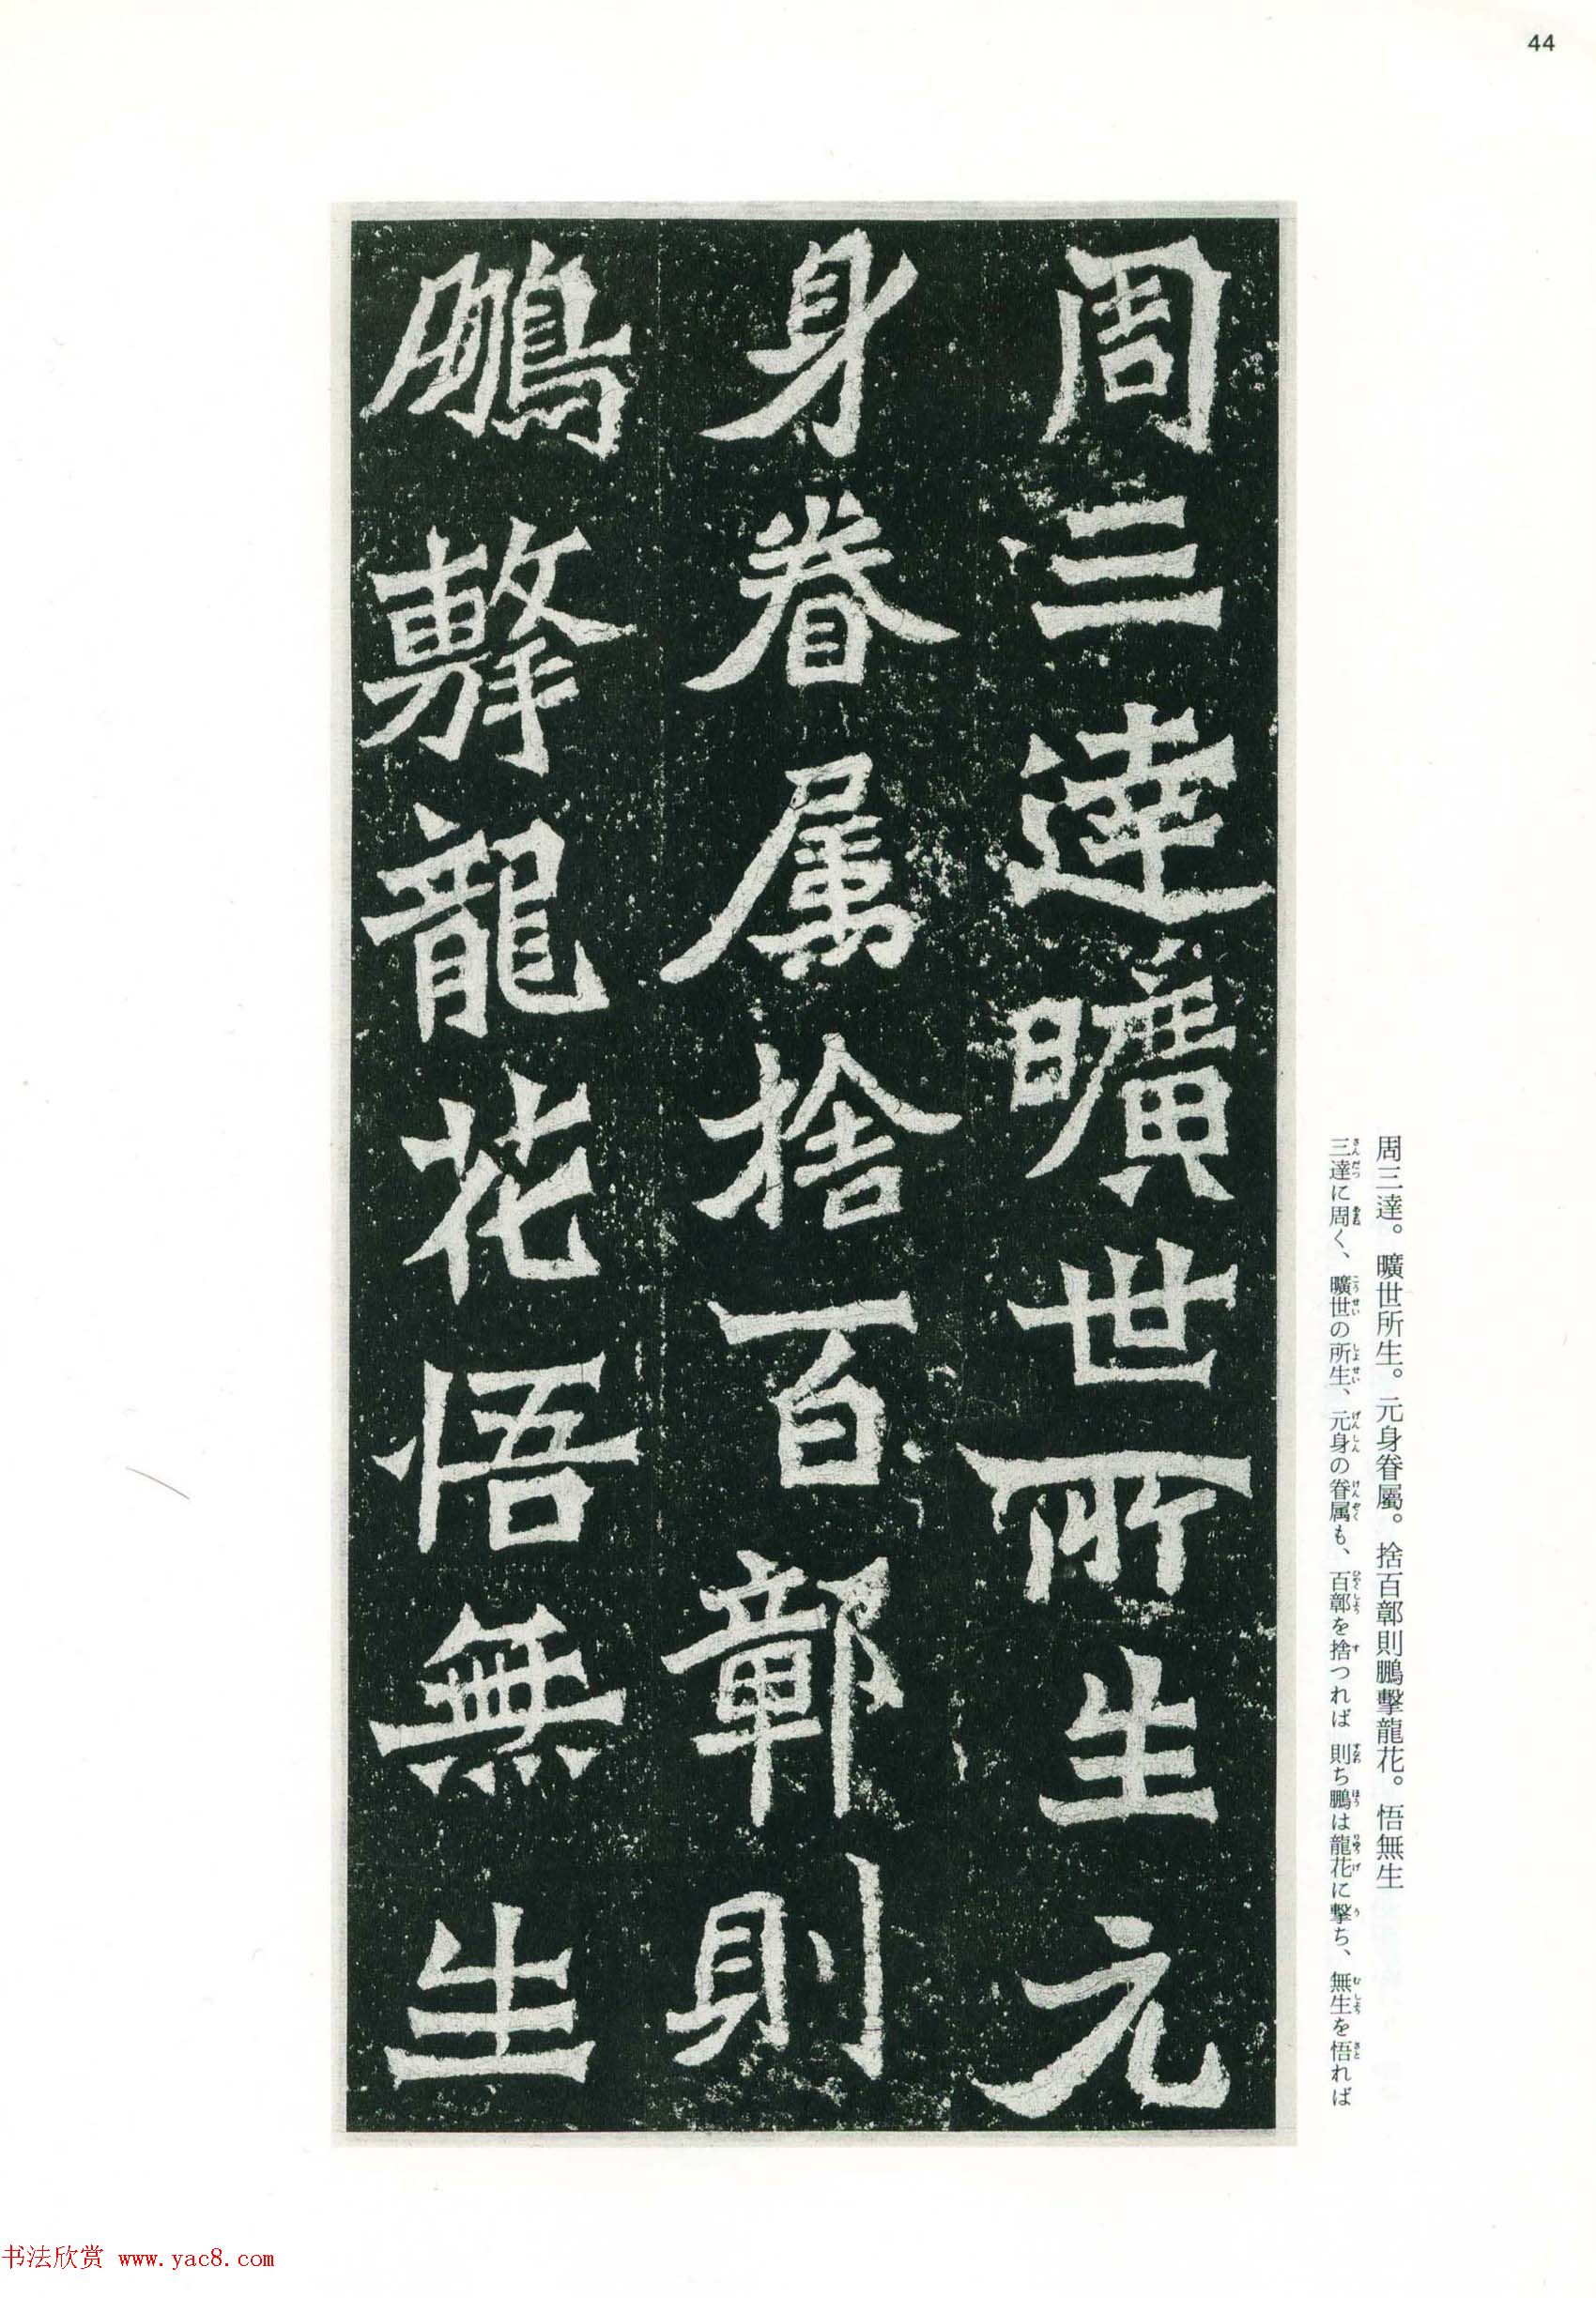 44
周三達曠世所生元
身眷属捨百鄣則
鵬擊龍花悟無生
周三達。曠世所生。元身眷屬。捨百鄣則鵬擊龍花。悟無生
三達に周く、曠世の所生、元身の眷属も、百鄣を捨つれば 則ち鵬は龍花に撃ち、無生を悟れば
书法欣赏 www.yac8.com